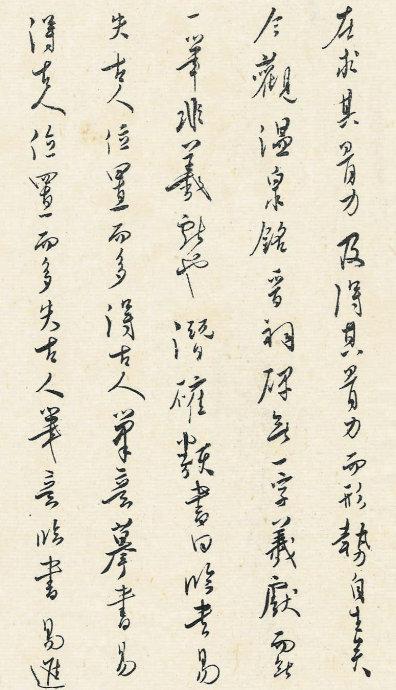 在求其骨力及得其骨力而形勢自生矣
今觀温泉銘晋祠碑無一字羲獻而無
一筆非羲獻也潛確類書曰臨书易
失古人位置而多得古人筆意摹書易
得古人位置而多失古人筆意臨書易進